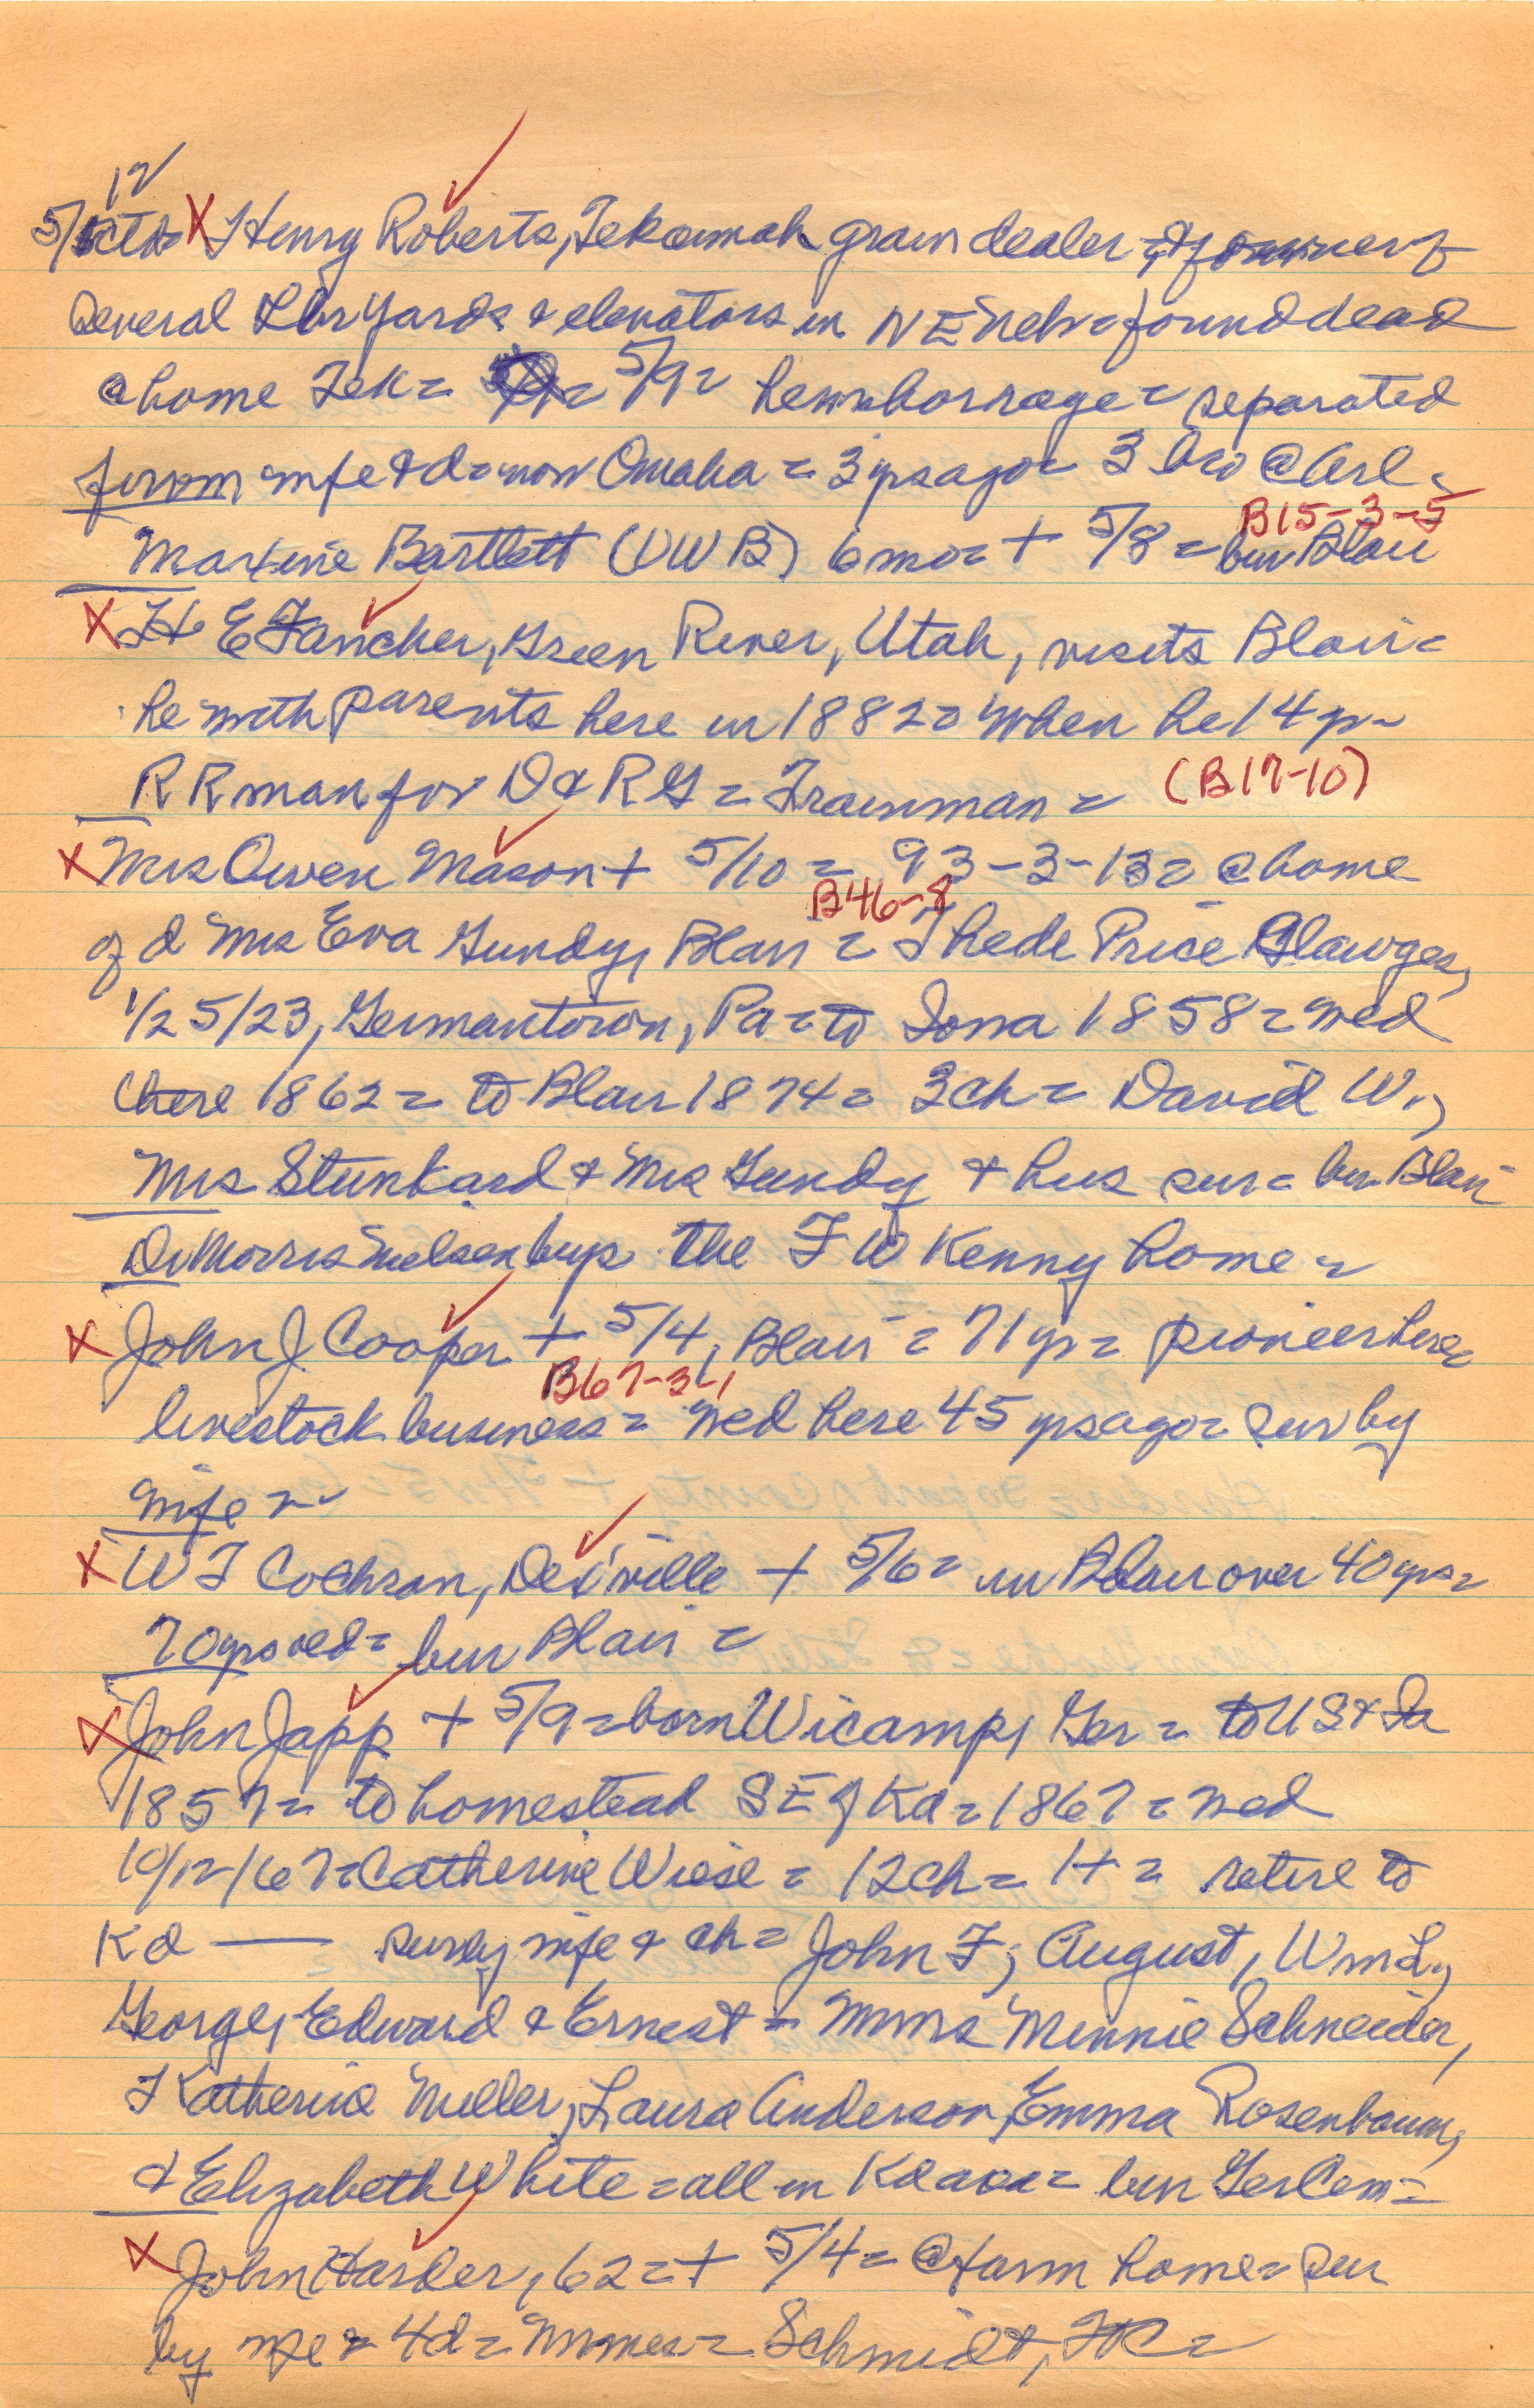 12
5/ X Henry Roberts, Tekamah grain dealer & owner of
several Lbr yards & elevators in NE Neb = found dead
@ home Tek = 5/9 = hemmhorrage = separated
from wife & d = now Omaha = 3 yrs ago = 3 bro @ Arl =
B15-3-5
Maxine Bartlett (VWB) 6 mo = + 5/8 = bur Blair
X H E Fancher, Green River, Utah, visits Blair =
he with parents here in 1882 = when he 14 yr =
RR man for D & RG = Trainman = (B17-10)
X Mrs Owen Mason + 5/10 = 93-3-13 = @ home
B46-8
of d Mrs Eva Gundy, Blair = Thede Price
1/25/23, Germantown, Pa = to Iowa 1858 = wed
there 1862 = to Blair 1874 = 3ch = David W.,
Mrs Stunkard & Mrs Gundy & hus sur = bur Blair
Dr Morris Nielsen buys the F W Kenny home =
X John J Cooper + 5/4, Blair = 71 yr = pioneer here
B67-3-1
livestock business = wed here 45 yrs ago = sur by
wife =
X W F Cochran, DeS'ville + 5/6 = in Blair over 40 yrs =
70 yrs old = bur Blair =
X John Japp + 5/9 = born Wicamp, Ger = to US & Ia
1857 = to homestead SE of Kd = 1867 = wed
10/12/67 = Catherine Wiese = 12ch = 1+ = retire to
Kd — sur by wife & ch = John F, August, Wm L,
George, Edward & Ernest = Mmes Minnie Schneider,
Katherine Miller, Laura Anderson, Emma Rosenbaum,
& Elizabeth White = all in Kd area = bur Ger Cem =
X John Harder, 62 = + 5/4 = @ farm home = sur
by wife & 4d = Mmes = Schmidt, FtC =